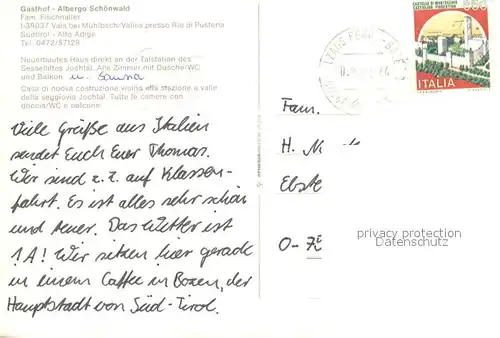 Gasthof - Albergo Schönwald
Fam. Fischnaller
I-39037 Vals bei Mühlbach/Valles presso Rio di Pusteria
Südtirol - Alto Adige
Tel. 0472/57129
Neuerbautes Haus direkt an der Talstation des
Sesselliftes Jochtal. Alle Zimmer mit Dusche/WC
und Balkon u. Sauna
Casa di nuova costruzione vicino alla stazione a valle
della seggiovia Jochtal. Tutte le camere con
doccia/WC e balcone
Viele Grüße aus Italien
sendet Euch Euer Thomas.
Wir sind z.Z. auf Klassen-
fahrt. Es ist alles sehr schön
und teuer. Das Wetter ist
1A! Wir sitzen hier gerade
in einem Caffee in Bozen, der
Hauptstadt von Süd-Tirol.
CASTELLO DI MONTECCHIO
CASTIGLION FIORENTINO
ITALIA
Fam.
H. N
Elste
O-7
privacy protection
Datenschutz